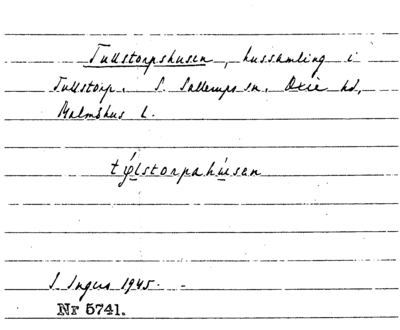 Tullstorpshusen, hussamling i
Tullstorp. S. Sallerups sn. Oxie hd,
Malmöhus l.
týlstorpahúsen
S. Ingers 1945.
Nr 5741.